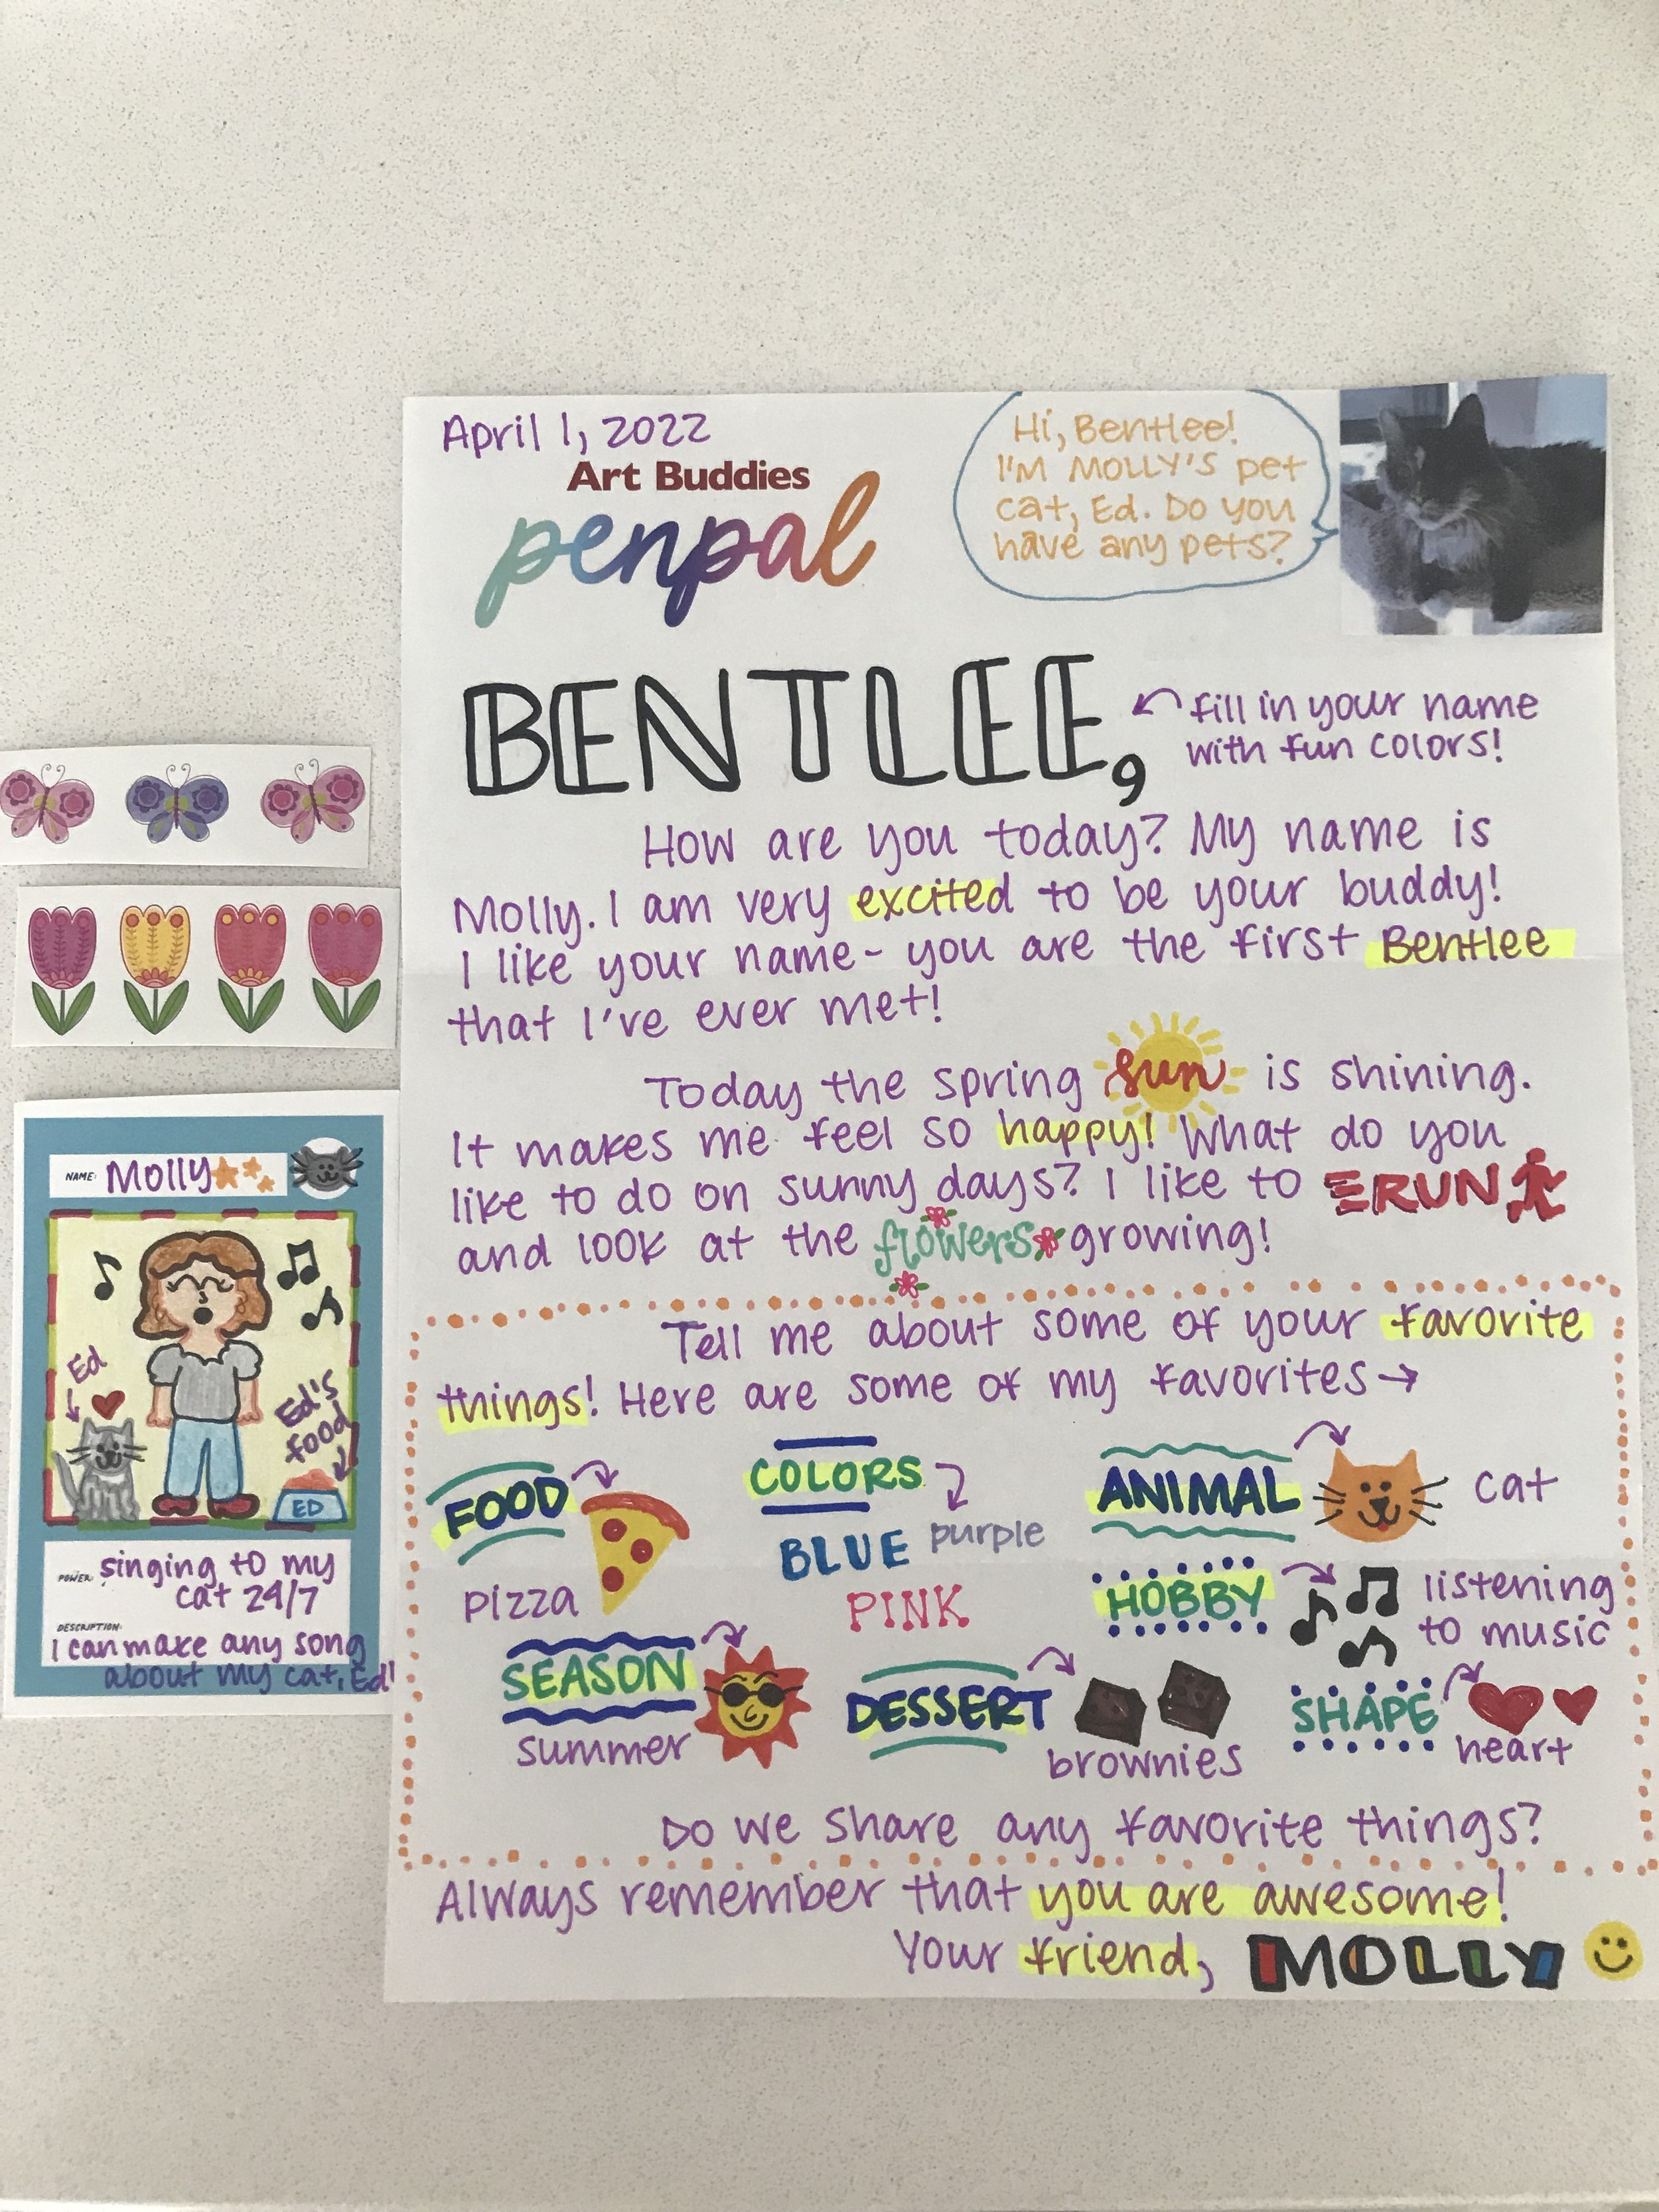 April 1, 2022
Art Buddies
penpal
Hi, Bentlee!
I'M MOLLY'S pet
cat, Ed. Do you
have any pets?
BENTLEE,
fill in your name
with fun colors!
How are you today? My name is
Molly. I am very excited to be your buddy!
I like your name- you are the first Bentlee
that I've ever met!
Today the spring sun is shining.
It makes me feel so happy! What do you
like to do on sunny days? I like to RUN
and look at the flowers growing!
Tell me about some of your favorite
things! Here are some of my favorites→
FOOD
pizza
COLORS
BLUE purple
PINK
ANIMAL
cat
HOBBY
listening
to music
SEASON
summer
DESSERT
brownies
SHAPE
heart
Do we share any favorite things?
Always remember that you are awesome!
Your friend, MOLLY
NAME: Molly
Ed
Ed's
food
ED
POWER: singing to my
cat 24/7
DESCRIPTION:
I can make any song
about my cat, Ed!